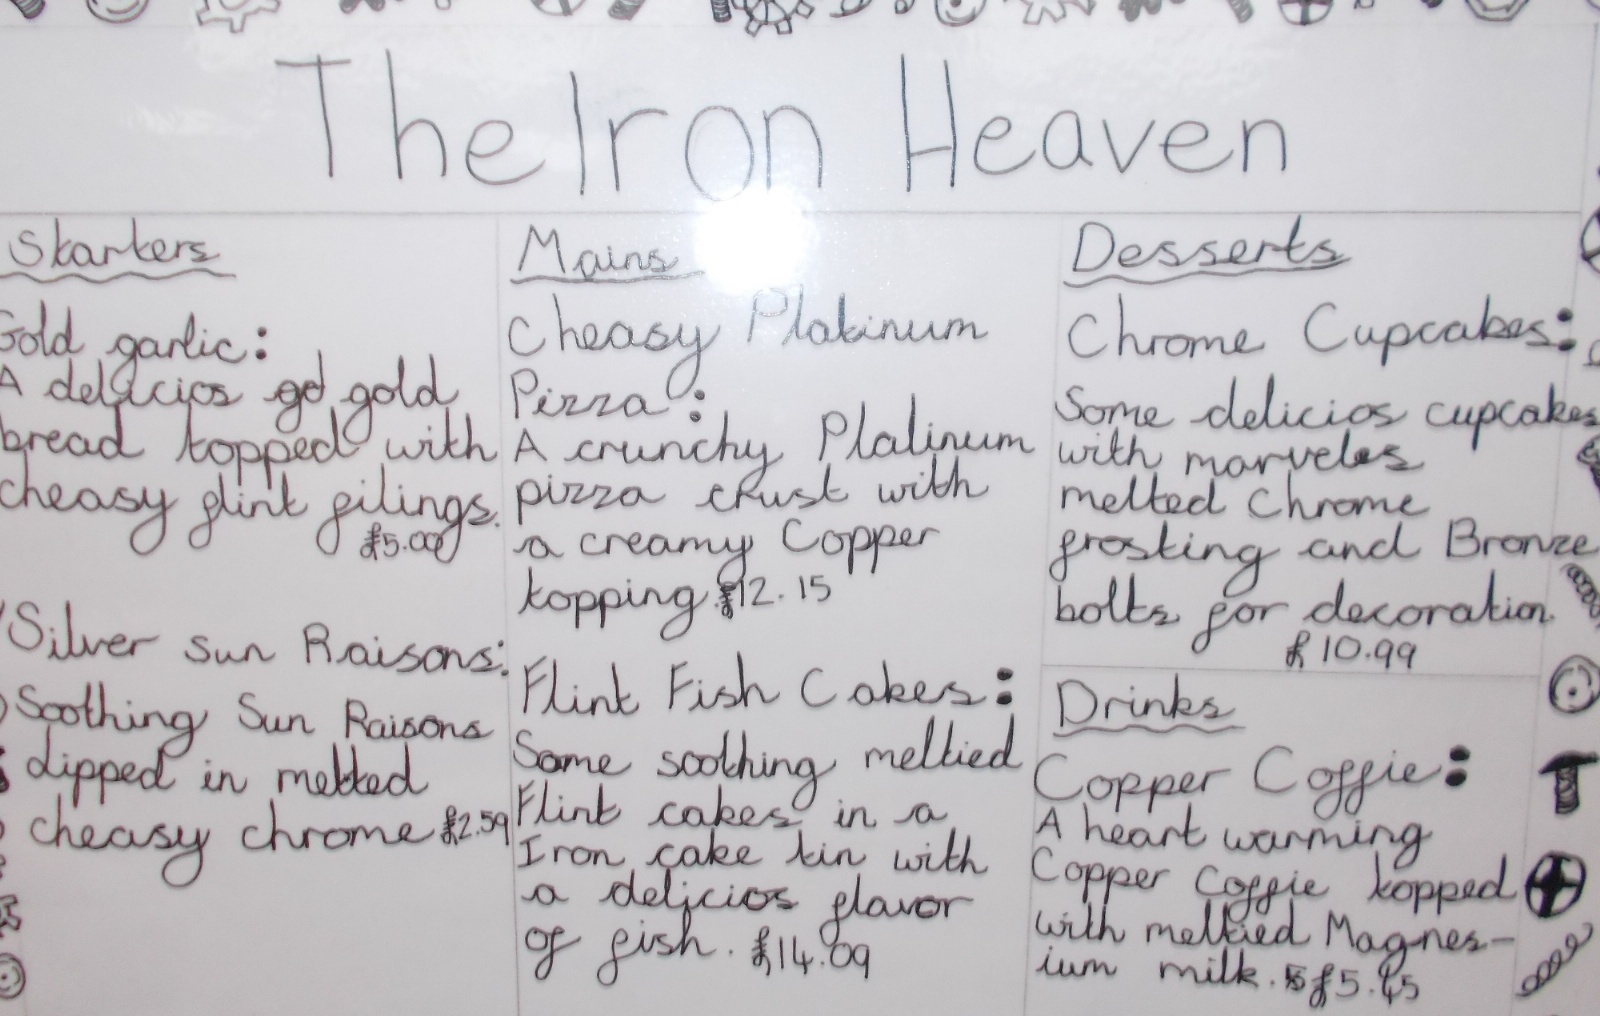 The Iron Heaven
Starters
Gold garlic:
A delicios gold
bread topped with
cheasy flint filings.
£5.00
Silver sun Raisons:
Soothing Sun Raisons
dipped in melted
cheasy chrome £2.59
Mains
Cheasy Platinum
Pizza:
A crunchy Platinum
pizza crust with
a creamy Copper
topping £12.15
Flint Fish Cakes:
Some soothing meltied
Flint cakes in a
Iron cake tin with
a delicios flavor
of fish. £14.09
Desserts
Chrome Cupcakes:
Some delicios cupcakes
with marveles
melted Chrome
frosting and Bronze
bolts for decoration.
£10.99
Drinks
Copper Coffie:
A heart warming
Copper Coffie topped
with meltied Magnes-
ium milk. £5.45